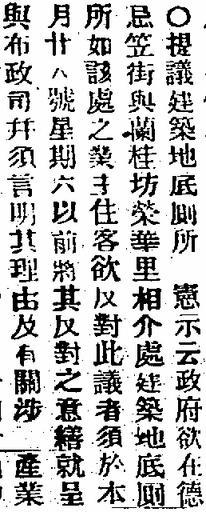 ○提議建築地底厠所　憲示云政府欲在德
忌笠街與蘭桂坊榮華里相介處建築地底厠
所如該處之業主住客欲反對此議者須於本
月廿八號星期六以前將其反對之意繕就呈
與布政司幷須言明其理由及有關涉　產業